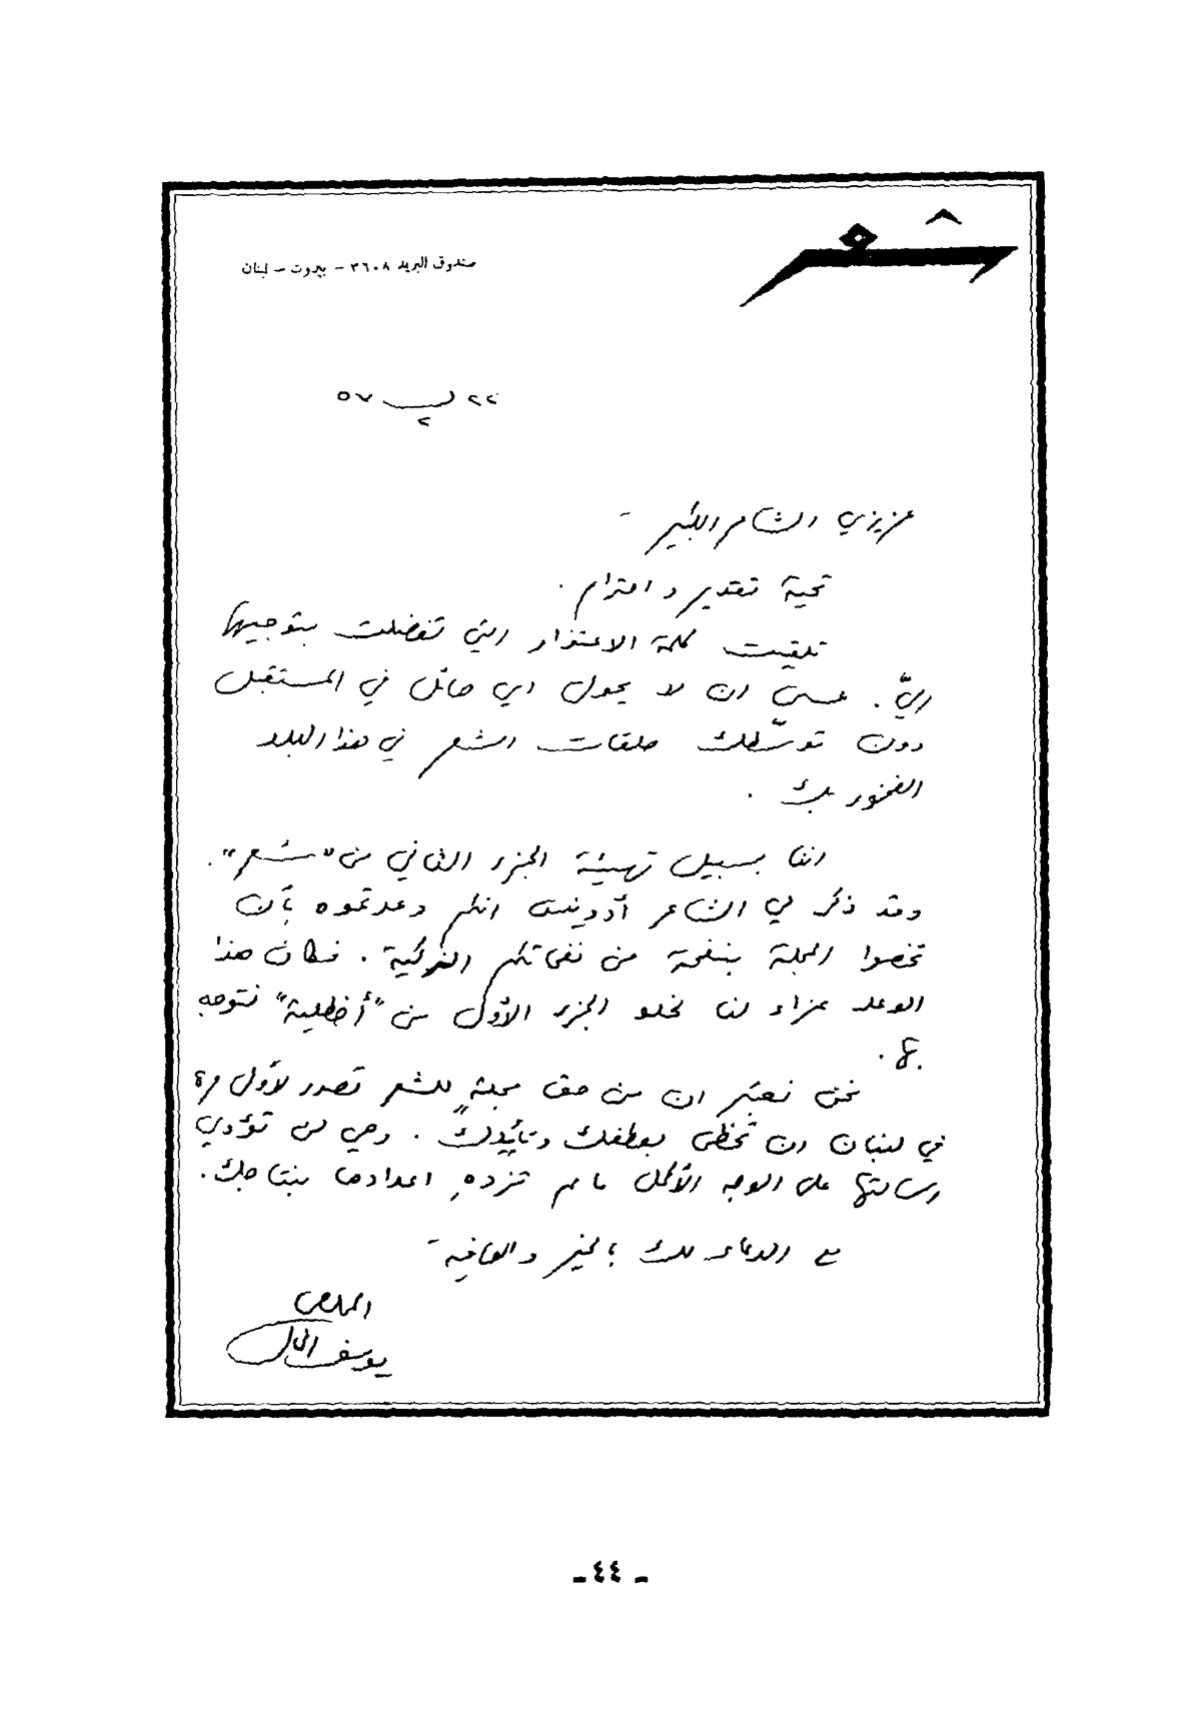 شعر
صندوق البريد ٣٦٠٨ - بيروت - لبنان
٥٧
عزيزي الشاعر الكبير -
تحية تقدير و احترام .
تلقيت كلمة الاعتذار التي تفضلت بتوجيهها
اليّ . عسى ان لا يحول اي حائل في المستقبل
دون توسّطك حلقات الشعر في هذا البلد
الفخور بك .
اننا بسبيل تهيئة الجزء الثاني من "شعر" .
وقد ذكر لي الشاعر أدونيس انكم وعدتموه بأن
تخصوا المجلة بنفحة من نفحاتكم الزكية . فكان هذا
الوعد عزاء لنا لخلو الجزء الأول من "أخطلية" نتوجه
بها .
نحن نعتبر ان من حق مجلةٍ للشعر تصدر لأول مرة
في لبنان ان تحظى بعطفك وتأييدك . وهي لن تؤدي
رسالتها على الوجه الأكمل ما لم تزدهِ اعدادها بنتاجك .
مع الدعاء لك بالخير و العافية -
المخلص
يوسف الخال
- ٤٤ -